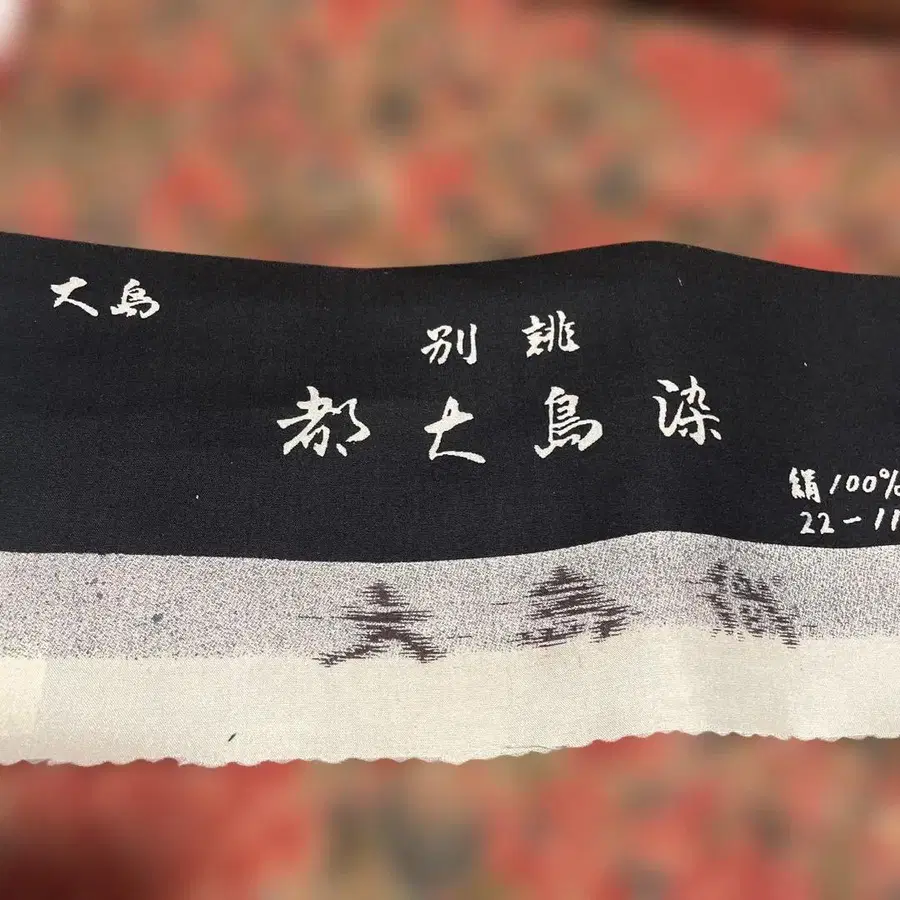 大島
別誂
都大島染
絹100%
22-11
大島